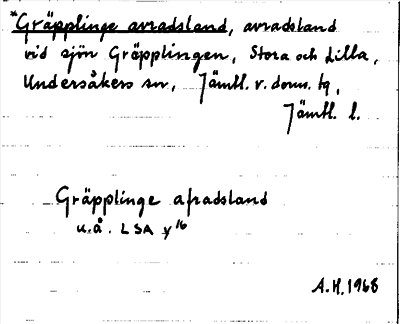 *Gräpplinge avradsland, avradsland
vid sjön Gräpplingen, Stora och Lilla,
Undersåkers sn, Jämtl. v. doms. tg,
Jämtl. l.
Gräpplinge afradsland
u.å. LSA y 16
A.H. 1968